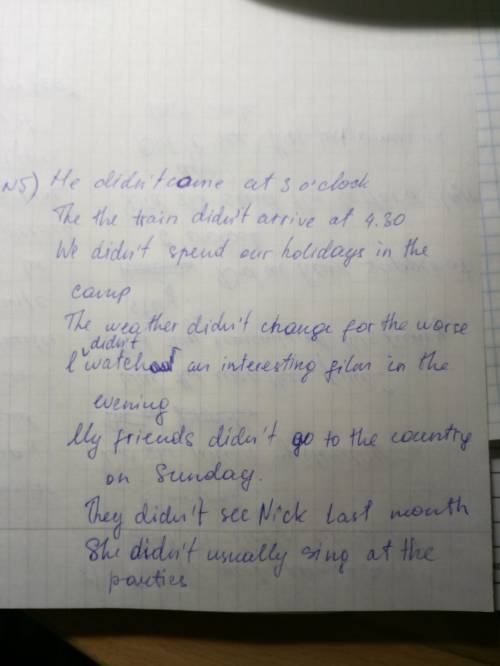 N5) He didn't came at 3 o'clock
The the train didn't arrive at 4.30
We didn't spend our holidays in the
camp
The weather didn't change for the worse
I didn't watch an interesting film in the
evening
My friends didn't go to the country
on Sunday.
They didn't see Nick last month
She didn't usually sing at the
parties